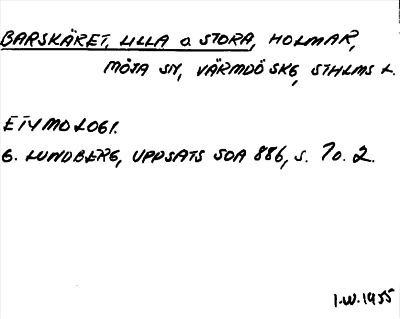 BARSKÄRET, LILLA o. STORA, HOLMAR,
MÖJA SN, VÄRMDÖ SKG, STHLMS L.
ETYMOLOGI.
G. LUNDBERG, UPPSATS SOA 886, s. 70. 2.
I.W. 1955